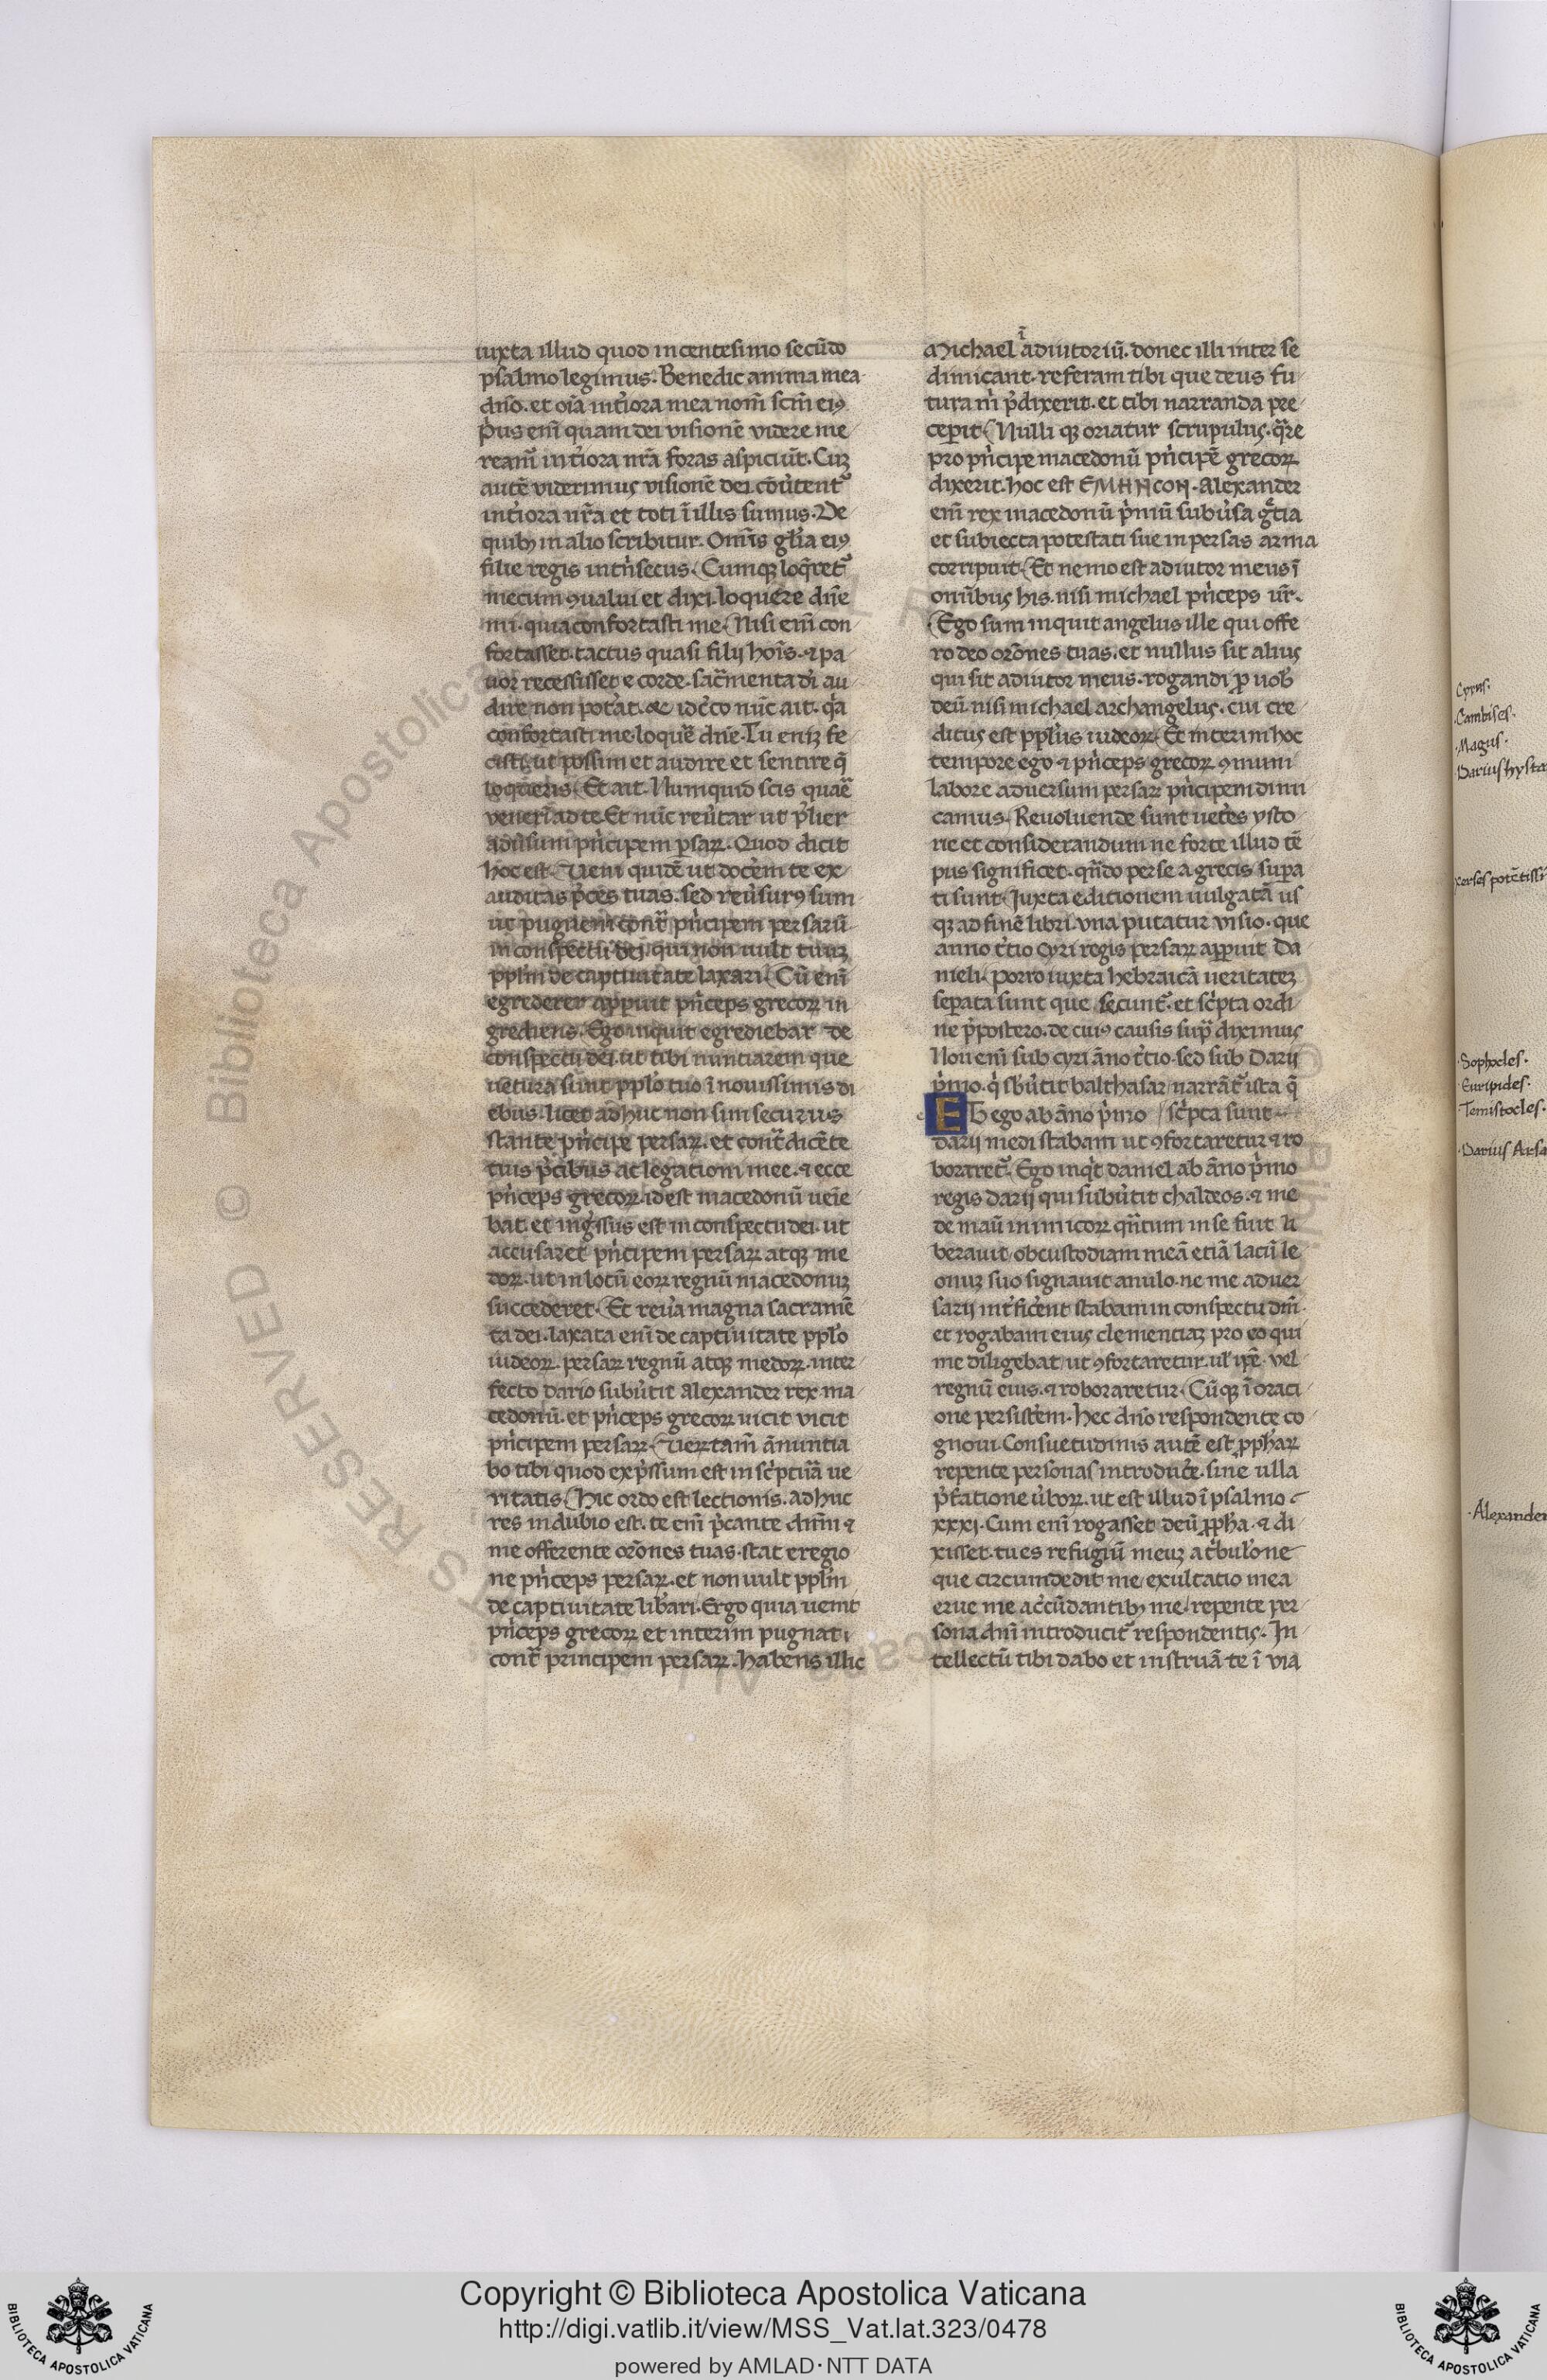 iuxta illud quod in centesimo secūdo
psalmo legimus. Benedic anima mea
dño. et oīa int̾iora mea nom̄ scm̄ eiꝯ
P̾us eni quam dei visionē videre me
ream̄ int̾iora nr̄a foras aspiciūt. Cuꝫ
autē viderimus visionē dei cōūtent᷑
int̾iora nr̄a et toti ī illis sumus. De
quibꝫ in alio scribitur. Omīs gl̄ia eiꝯ
filie regis int̾nsecus. Cumqꝫ loq̄ret᷑
mecum ꝯualui et dixi. loquere dn̄e
mi. quia confortasti me. Nisi enī con
fortasset. tactus quasi filij hoīs. ⁊ pa
uor recessisset e corde. sac̄menta di au
dire non pot̾at. & idc̄co nūc ait. q̄a
confortasti me. loque᷑ dn̄e. Tu eniꝫ fe
cisti. ut possim et audire et sentire q̄
loqueris. Et ait. Numquid scis quare
venerī ad te. Et nūc reūtar ut p̄lier
adūsum pn̾cipem p̱saꝝ. Quod dicit
hoc est. Veni quidē ut docem te ex
auditas p̄ces tuas. sed reūsurꝯ sum
ut pugnem cont᷑ pn̾cipem persarū
in conspectu dei. qui non uult tuuꝫ
pplm̄ de captiuitate laxari. Cū enī
egrederer apparuit pn̾ceps grecoꝝ in
grediens. Ego inquit egrediebar de
conspectu dei. ut tibi nuntiarem que
uētura sunt pplo tuo ī nouissimis di
ebus. licet adhuc non sim securus
stante pn̾cipe persaꝝ. et cont᷑dicēte
tuis p̄cibus ac legationi mee. ⁊ ecce
pn̾ceps grecoꝝ. id est macedonū ueie
bat. et ing̾ssus est in conspectu dei. ut
accusaret pn̾cipem persaꝝ atqꝫ me
doꝝ. ut in locū eoꝝ regnū macedonuꝫ
succederet. Et reūa magna sacramē
ta dei. laxata enī de captiuitate pplo
iudeoꝝ. persaꝝ regnū atqꝫ medoꝝ. inter
fecto dario subūtit Alexander rex ma
cedonū. et pn̾ceps grecoꝝ uicit vicit
pn̾cipem persaꝝ. Verū tam̄ ānuntia
bo tibi quod exp̾ssum est in sc̾ptura ue
ritatis. Hic ordo est lectionis. adhuc
res in dubio est. te enī p̄cante dnm̄ ⁊
me offerente orōnes tuas. stat e regio
ne pn̾ceps persaꝝ. et non uult pplm̄
de captiuitate lib̾ari. Ergo quia uenit
pn̾ceps grecoꝝ et interim pugnat
cont᷑ principem persaꝝ. habens illic
Michael ī adiutoriū. donec illi inter se
dimicant. referam tibi que deus fu
tura m̾ p̄dixerit. et tibi narranda pre
ceperit. Nulli qꝫ oriatur scrupulus. q̄re
pro pn̾cipe macedonū pn̾cipē grecoꝝ
dixerit. hoc est ЄΜΗΝCΟΝ. Alexander
enī rex macedonū p̾mū subūsa g̾tia
et subiecta potestati sue in persas arma
corripuit. Et nemo est adiutor meus ī
omībus his. nisi michael pn̾ceps ur̄.
Ego sum inquit angelus ille qui offe
ro deo orōnes tuas. et nullus sit alius
qui sit adiutor meus. rogandi ꝓ uob̾
deū. nisi michael archangelus. cui cre
ditus est pplūs iudeoꝝ. Et interim hoc
tempore ego ⁊ pn̾ceps grecoꝝ ꝯmuni
labore aduersum persaꝝ pn̾cipem dimi
camus. Reuoluende sunt uet̾es ysto
rie et considerandum ne forte illud tē
pus significet. qn̄do perse a grecis supa
ti sunt. Juxta editionem uulgatā us
qꝫ ad finē libri. vna putatur visio. que
anno t̾cio cyri regis persaꝝ apparuit Da
nieli. Porro iuxta hebraicā ueritateꝫ
separata sunt que secunt᷑. et sc̾pta ordi
ne p̾postero. de cuiꝯ causis sup̄ diximus
Non enī sub cyri āno t̾cio. sed sub Darij
p̾mo. q̾ sb̄ūtit balthasar narrāt᷑ ista q̄
Eḡ ego ab āno p̾mo / sc̾pta sunt
darij medi stabam ut ꝯfortaretur ⁊ ro
boraret᷑. Ego inqt̾ daniel ab āno p̾mo
regis darij qui subūtit chaldeos. ⁊ me
de manu inimicoꝝ qn̄tum in se fuit li
berauit. ob custodiam meā etiā lacū le
onuꝫ suo signauit anulo. ne me aduer
sarij int̾ficerent stabam in conspectu dnī.
et rogabam eius clementiaꝫ pro eo qui
me diligebat. ut ꝯfortaretur. ul̾ ip̄e. vel
regnū eius. ⁊ roboraretur. Cūqꝫ ī oraci
one persistem. hec dn̄o respondente co
gnoui. Consuetudinis autē est ꝓpharꝝ
repente personas introduce. sine ulla
p̄fatione ūboꝝ. ut est illud ī psalmo
xxxj. Cum enī rogasset deū ꝓpha. ⁊ di
xisset. tu es refugiū meuꝫ a t̾bulone
que circumdedit me exultatio mea
erue me a ccūdantibꝫ me. repente per
sona dnī introducit᷑ respondentis. In
tellectū tibi dabo et instruā te ī via
Cyrus.
Cambises.
Magus.
Darius hysta
xerses potētissi
Sophocles.
Euripides.
Temistocles.
Darius Arsa
Alexander
© Biblioteca Apostolica
RESERVED
Copyright © Biblioteca Apostolica Vaticana
http://digi.vatlib.it/view/MSS_Vat.lat.323/0478
powered by AMLAD·NTT DATA
BIBLIOTECA APOSTOLICA VATICANA
BIBLIOTECA APOSTOLICA VATICANA